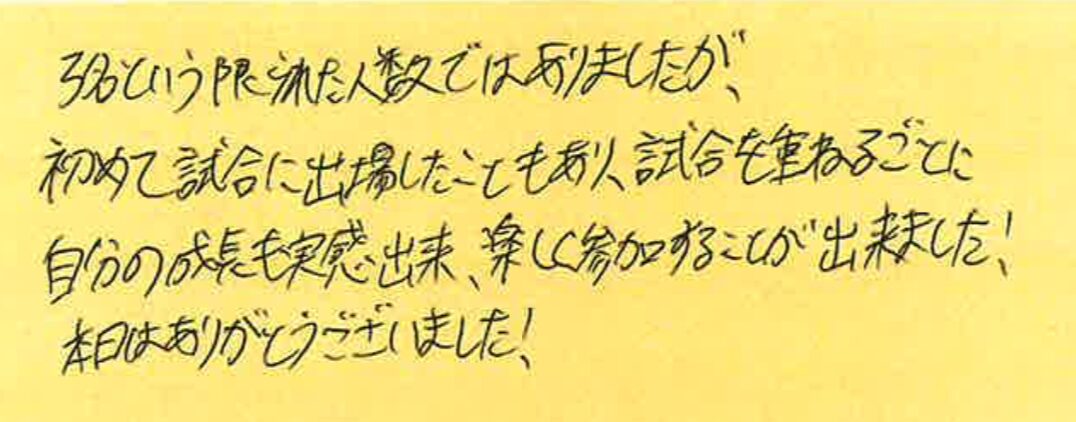 3名という限られた人数ではありましたが、
初めて試合に出場したこともあり、試合を重ねるごとに
自分の成長も実感出来、楽しく参加することが出来ました!
本日はありがとうございました!